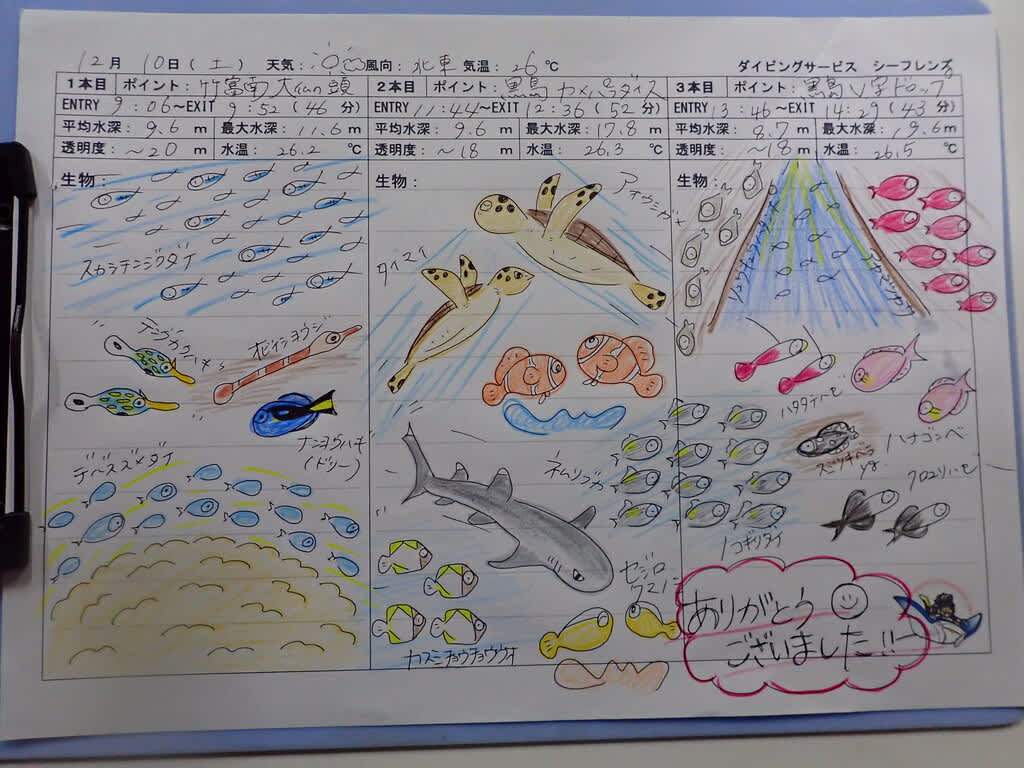 12月 10日(土) 天気: 風向: 北東 気温: 26℃ ダイビングサービス シーフレンズ
1本目 ポイント: 竹富南 大仏の頭
ENTRY 9:06~EXIT 9:52(46分)
平均水深: 9.6 m 最大水深: 11.6 m
透明度: ~20 m 水温: 26.2 ℃
生物:
スカシテンジクダイ
テングカワハギ
オイランヨウジ
ナンヨウハギ
(ドリー)
デバスズメダイ
2本目 ポイント: 黒島
ENTRY 11:44~EXIT 12:36(52分)
平均水深: 9.6 m 最大水深: 17.8 m
透明度: ~18 m 水温: 26.3 ℃
生物:
アオウミガメ
タイマイ
ネムリブカ
セジロ
クマノミ
カスミチョウチョウウオ
3本目 ポイント: 黒島 V字ドロップ
ENTRY 13:46~EXIT 14:29(43分)
平均水深: 8.7 m 最大水深: 19.6 m
透明度: ~18 m 水温: 26.5 ℃
生物:
アカマツカサ
ハタタテハゼ
ハナゴンベ
クロユリハゼ
ノコギリダイ
ありがとう
ございました!!